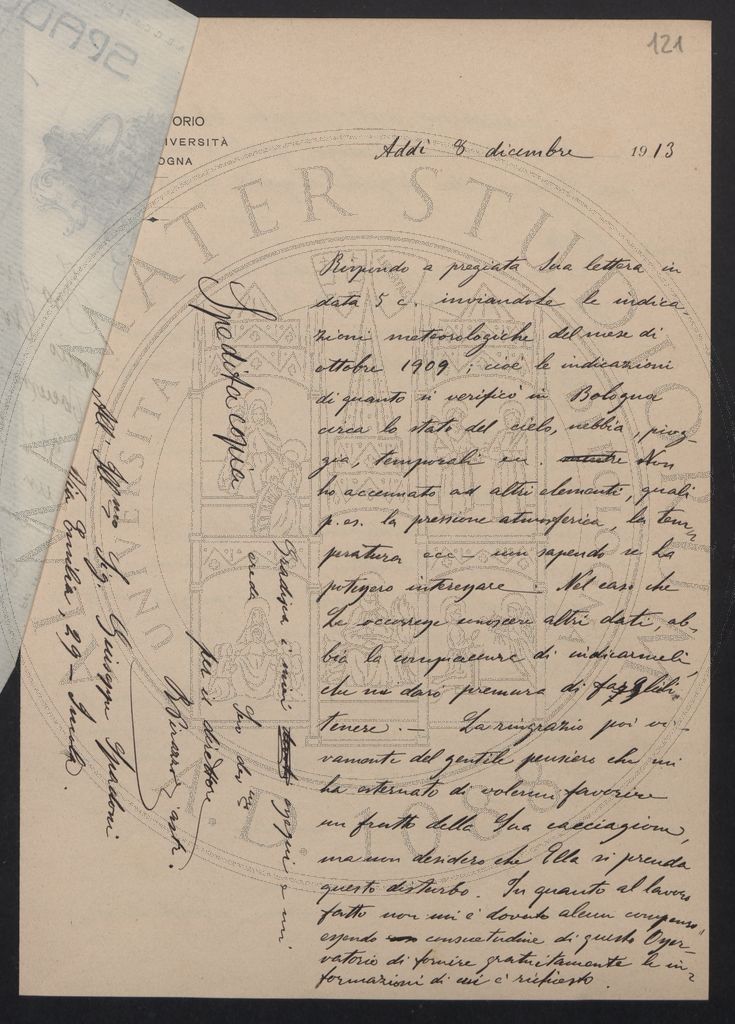 121
ORIO
IVERSITÀ
OGNA
Addì 8 dicembre 1913
Rispondo a pregiata Sua lettera in
data 5 c. inviandole le indica-
zioni meteorologiche del mese di
ottobre 1909; cioè le indicazioni
di quanto si verificò in Bologna
circa lo stato del cielo, nebbia, piog-
gia, temporali ecc. mentre Non
ho accennato ad altri elementi, quali
p. es. la pressione atmosferica, la tem-
peratura ecc – non sapendo se La
potessero interessare. Nel caso che
Le occorresse conoscere altri dati, ab-
bia la compiacenza di indicarmeli,
che mi darò premura di farglieli
tenere. — La ringrazio poi vi-
vamente del gentile pensiero che mi
ha esternato di volermi favorire
un frutto della Sua cacciagione,
ma non desidero che Ella si prenda
questo disturbo. In quanto al lavoro
fatto non mi è dovuto alcun compenso,
essendo consuetudine di questo Osser-
vatorio di fornire gratuitamente le in-
formazioni di cui è richiesto.
Gradisca i miei ossequi e mi
creda Suo dev.mo
per il direttore
astr.
Spedita copia
All' Ill.mo Sig. Giuseppe Spadoni
Via Emilia, 29 – Imola.
ALMA MATER STUDIORUM
A.D. 1088